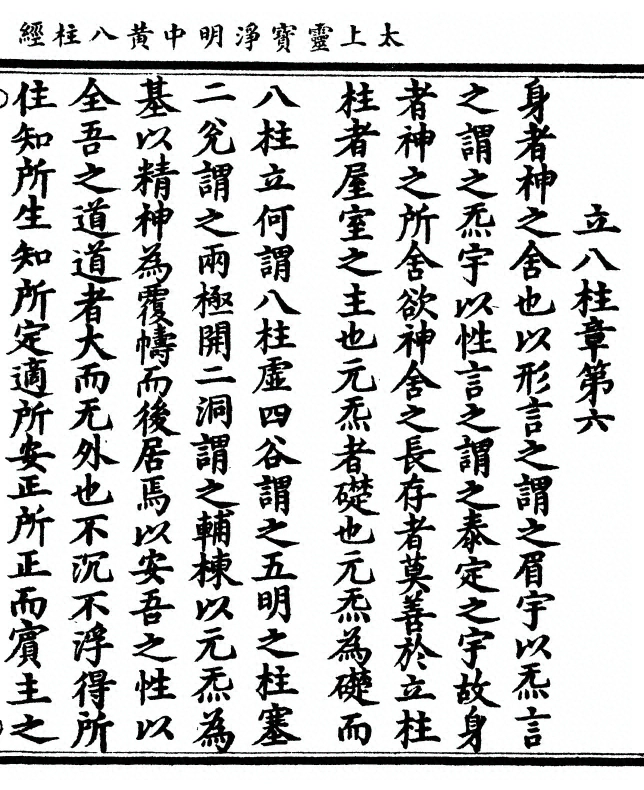 太上靈寳淨明中黃八柱經
立八柱章第六
身者神之舍也以形言之謂之眉宇以炁言
之謂之炁宇以性言之謂之泰定之宇故身
者神之所舍欲神舍之長存者莫善於立柱
柱者屋室之主也元炁者礎也元炁為礎而
八柱立何謂八柱虛四谷謂之五明之柱塞
二兊謂之兩極開二洞謂之輔棟以元炁為
基以精神為覆幬而後居焉以安吾之性以
全吾之道道者大而无外也不沉不浮得所
住知所生知所定適所安正所正而賓主之